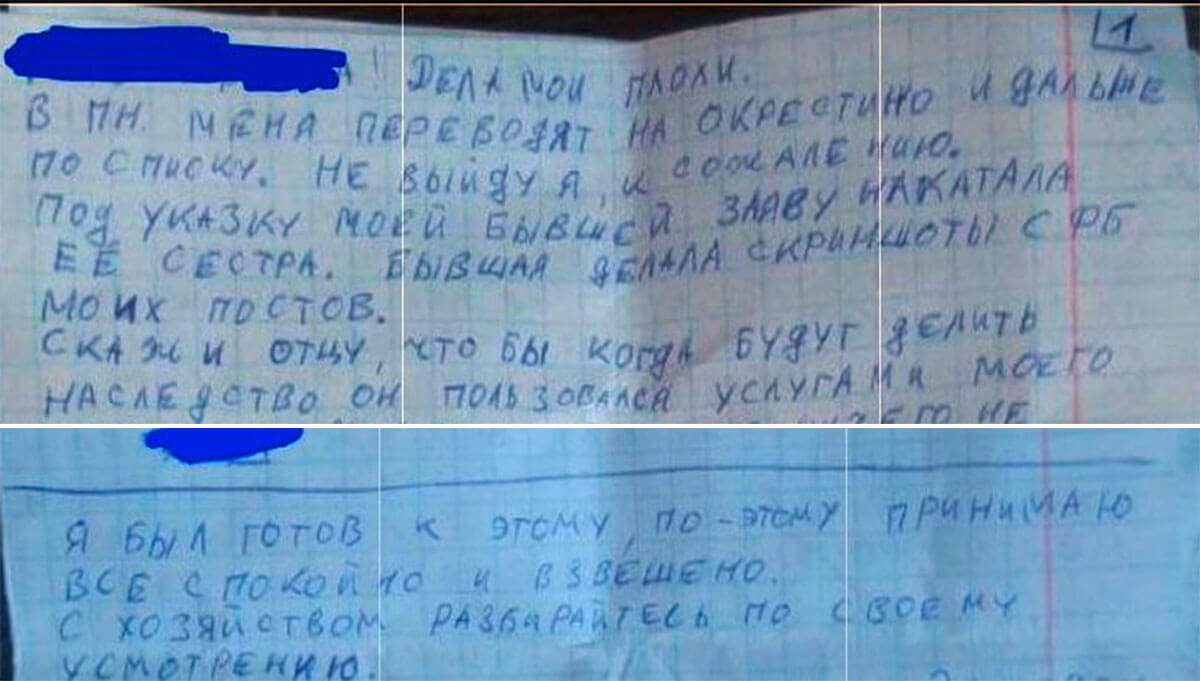 1
! ДЕЛА МОИ ПЛОХИ.
В ПН. МЕНЯ ПЕРЕВОДЯТ НА ОКРЕСТИНО И ДАЛЬШЕ
ПО СПИСКУ. НЕ ВЫЙДУ Я, К СОЖАЛЕНИЮ.
ПОД УКАЗКУ МОЕЙ БЫВШЕЙ ЗАЯВУ НАКАТАЛА
ЕЁ СЕСТРА. БЫВШАЯ ДЕЛАЛА СКРИНШОТЫ С ФБ
МОИХ ПОСТОВ.
СКАЖИ ОТЦУ, ЧТО БЫ КОГДА БУДУТ ДЕЛИТЬ
НАСЛЕДСТВО ОН ПОЛЬЗОВАЛСЯ УСЛУГАМИ МОЕГО
НЕ
Я БЫЛ ГОТОВ К ЭТОМУ, ПО-ЭТОМУ ПРИНИМАЮ
ВСЕ СПОКОЙНО И ВЗВЕШЕНО.
С ХОЗЯЙСТВОМ РАЗБИРАЙТЕСЬ ПО СВОЕМУ
УСМОТРЕНИЮ.